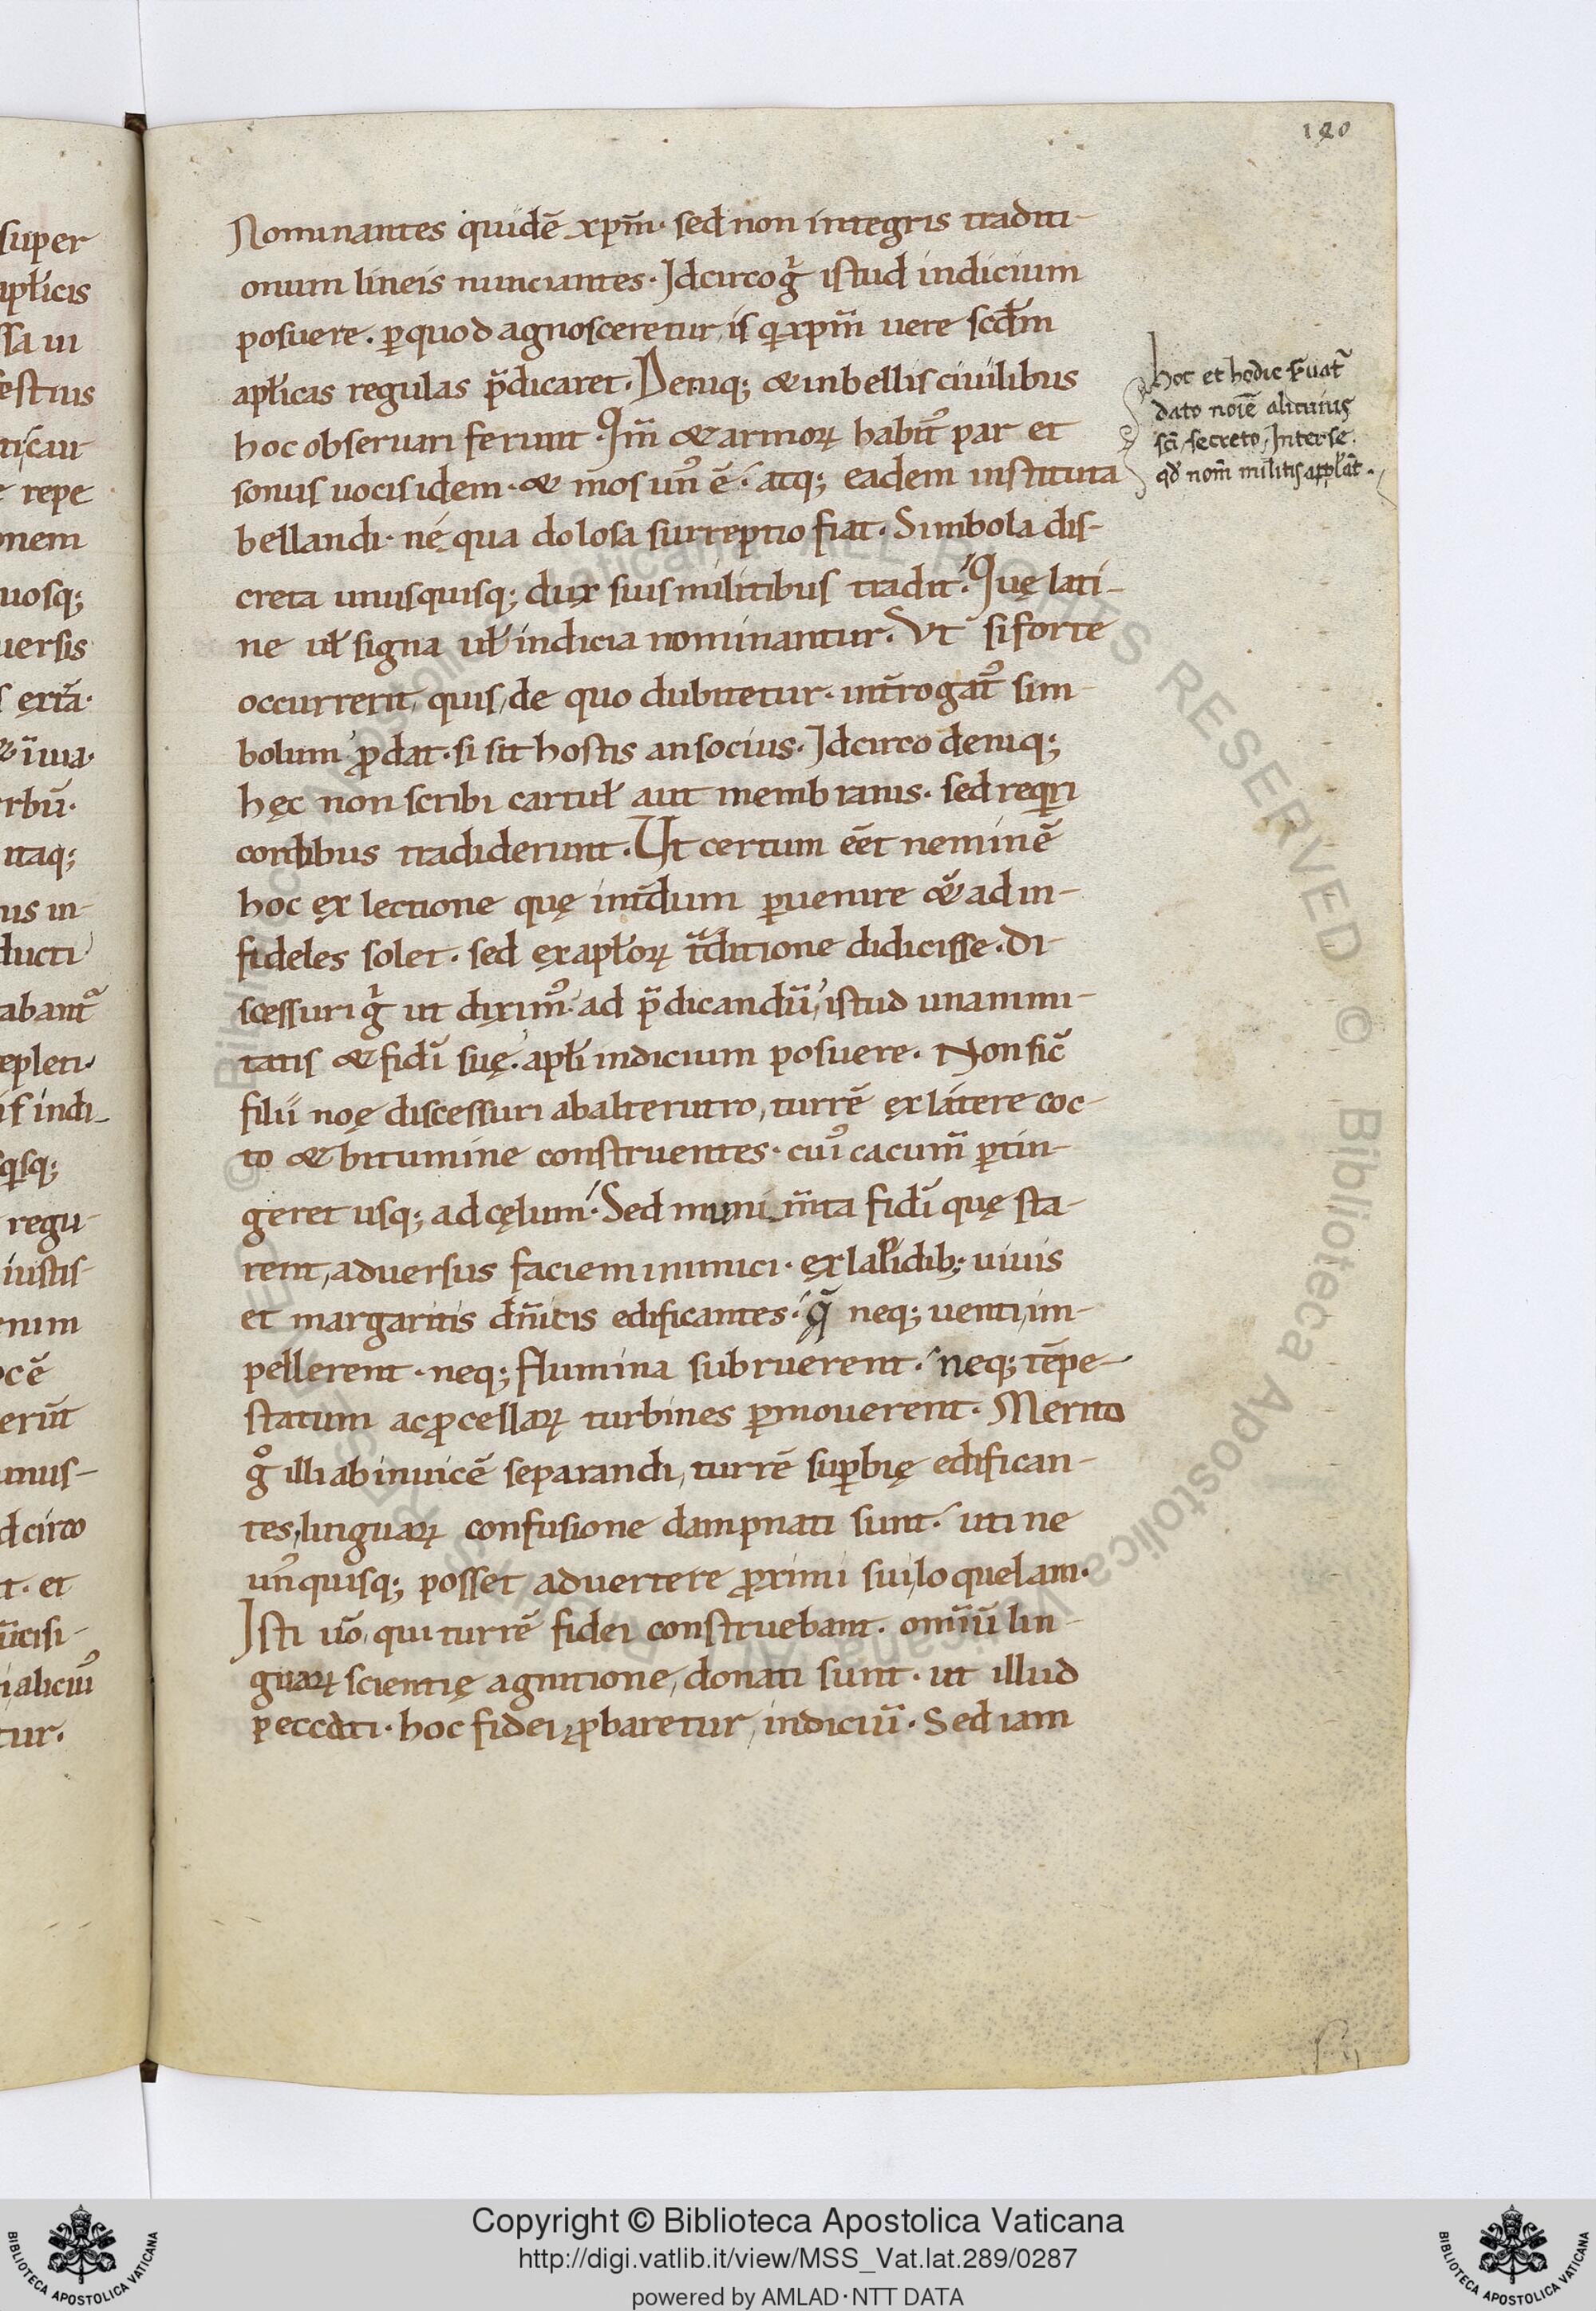 super
apłicis
ssa ui
festius
ticaur
repe
onem
uosq;
uersis
s ęxtā·
& iuua·
rbū·
itaq;
nis in-
ducti
abant᷒
epleri·
if indi-
sq̄sq;
regu-
iustis-
enim
ocē
erūt
unus-
dcirco
t· et
ūcisi-
i alicui᷒
tur.
120
Nominantes quidē xp̄m· sed non integris traditi-
onum lineis nunciantes· Idcirco g̃ istud indicium
posuere. ꝑ quod agnosceretur, is qͥ xp̄m uere scd̄m
apłicas regulas p̄dicaret. Deniq; & in bellis ciuilibus
hoc obseruari ferunt. Qm̄ & armoꝝ habit᷒ par et
sonus uocis idem· & mos un᷒ ē· atq; eadem instituta
bellandi· né qua dolosa surreptio fiat. Simbola dis-
creta unusquisq; dux suis militibus tradit. Quę lati-
ne uł signa uł indicia nominantur. Vt si forte
occurrerit, quis, de quo dubitetur· int̄rogat᷒ sim-
bolum ꝓdat· si sit hostis an socius· Idcirco deniq;
hęc non scribi cartuł aut membranis· sed reqͥri
cordibus tradiderunt. Ut certum eēt neminē
hoc ęx lectione quę int̄dum ꝑuenire & ad in-
fideles solet· sed ęx apłoꝝ tͣditione didicisse. Di
scessuri g̃ ut dixim᷒· ad p̄dicandū, istud unanimi-
tatis & fidī suę· apłi indicium posuere. Non sic̄
filii noę discessuri ab alterutro, turrē ęx látere coc-
to & bitumine construentes· cui᷒ cacum̄ ꝑtin-
geret usq; ad cęlum· Sed munim̄ta fidī quę sta-
rent, aduersus faciem inimici· ęx lapidib; uiuis
et margaritis dn̄icis edificantes· q̄ neq; uenti, im-
pellerent· neq; flumina subruerent· neq; tēpe-
statum ac ꝓcellaꝝ turbines ꝑmouerent. Merito
gͦ illi abinuicē separandi, turrē suꝑbię edifican-
tes, linguaꝝ confusione dampnati sunt· uti ne
un᷒quisq; posset aduertere ꝓximi sui, loquelam·
Isti uō, qui turrē fidei construebant· omiū lin-
guaꝝ scientię agnitione, donati sunt· ut illud
peccati· hoc fidei, ꝓbaretur, indiciū· Sed iam
hoc et hodie s̄uat᷒
dato noīe alicuius
scī, secreto, Inter se.
qd̄ nom̄ militis appłat̄.
© Biblioteca Apostolica Vaticana ALL RIGHTS RESERVED
Copyright © Biblioteca Apostolica Vaticana
http://digi.vatlib.it/view/MSS_Vat.lat.289/0287
powered by AMLAD·NTT DATA
BIBLIOTECA APOSTOLICA VATICANA
BIBLIOTECA APOSTOLICA VATICANA